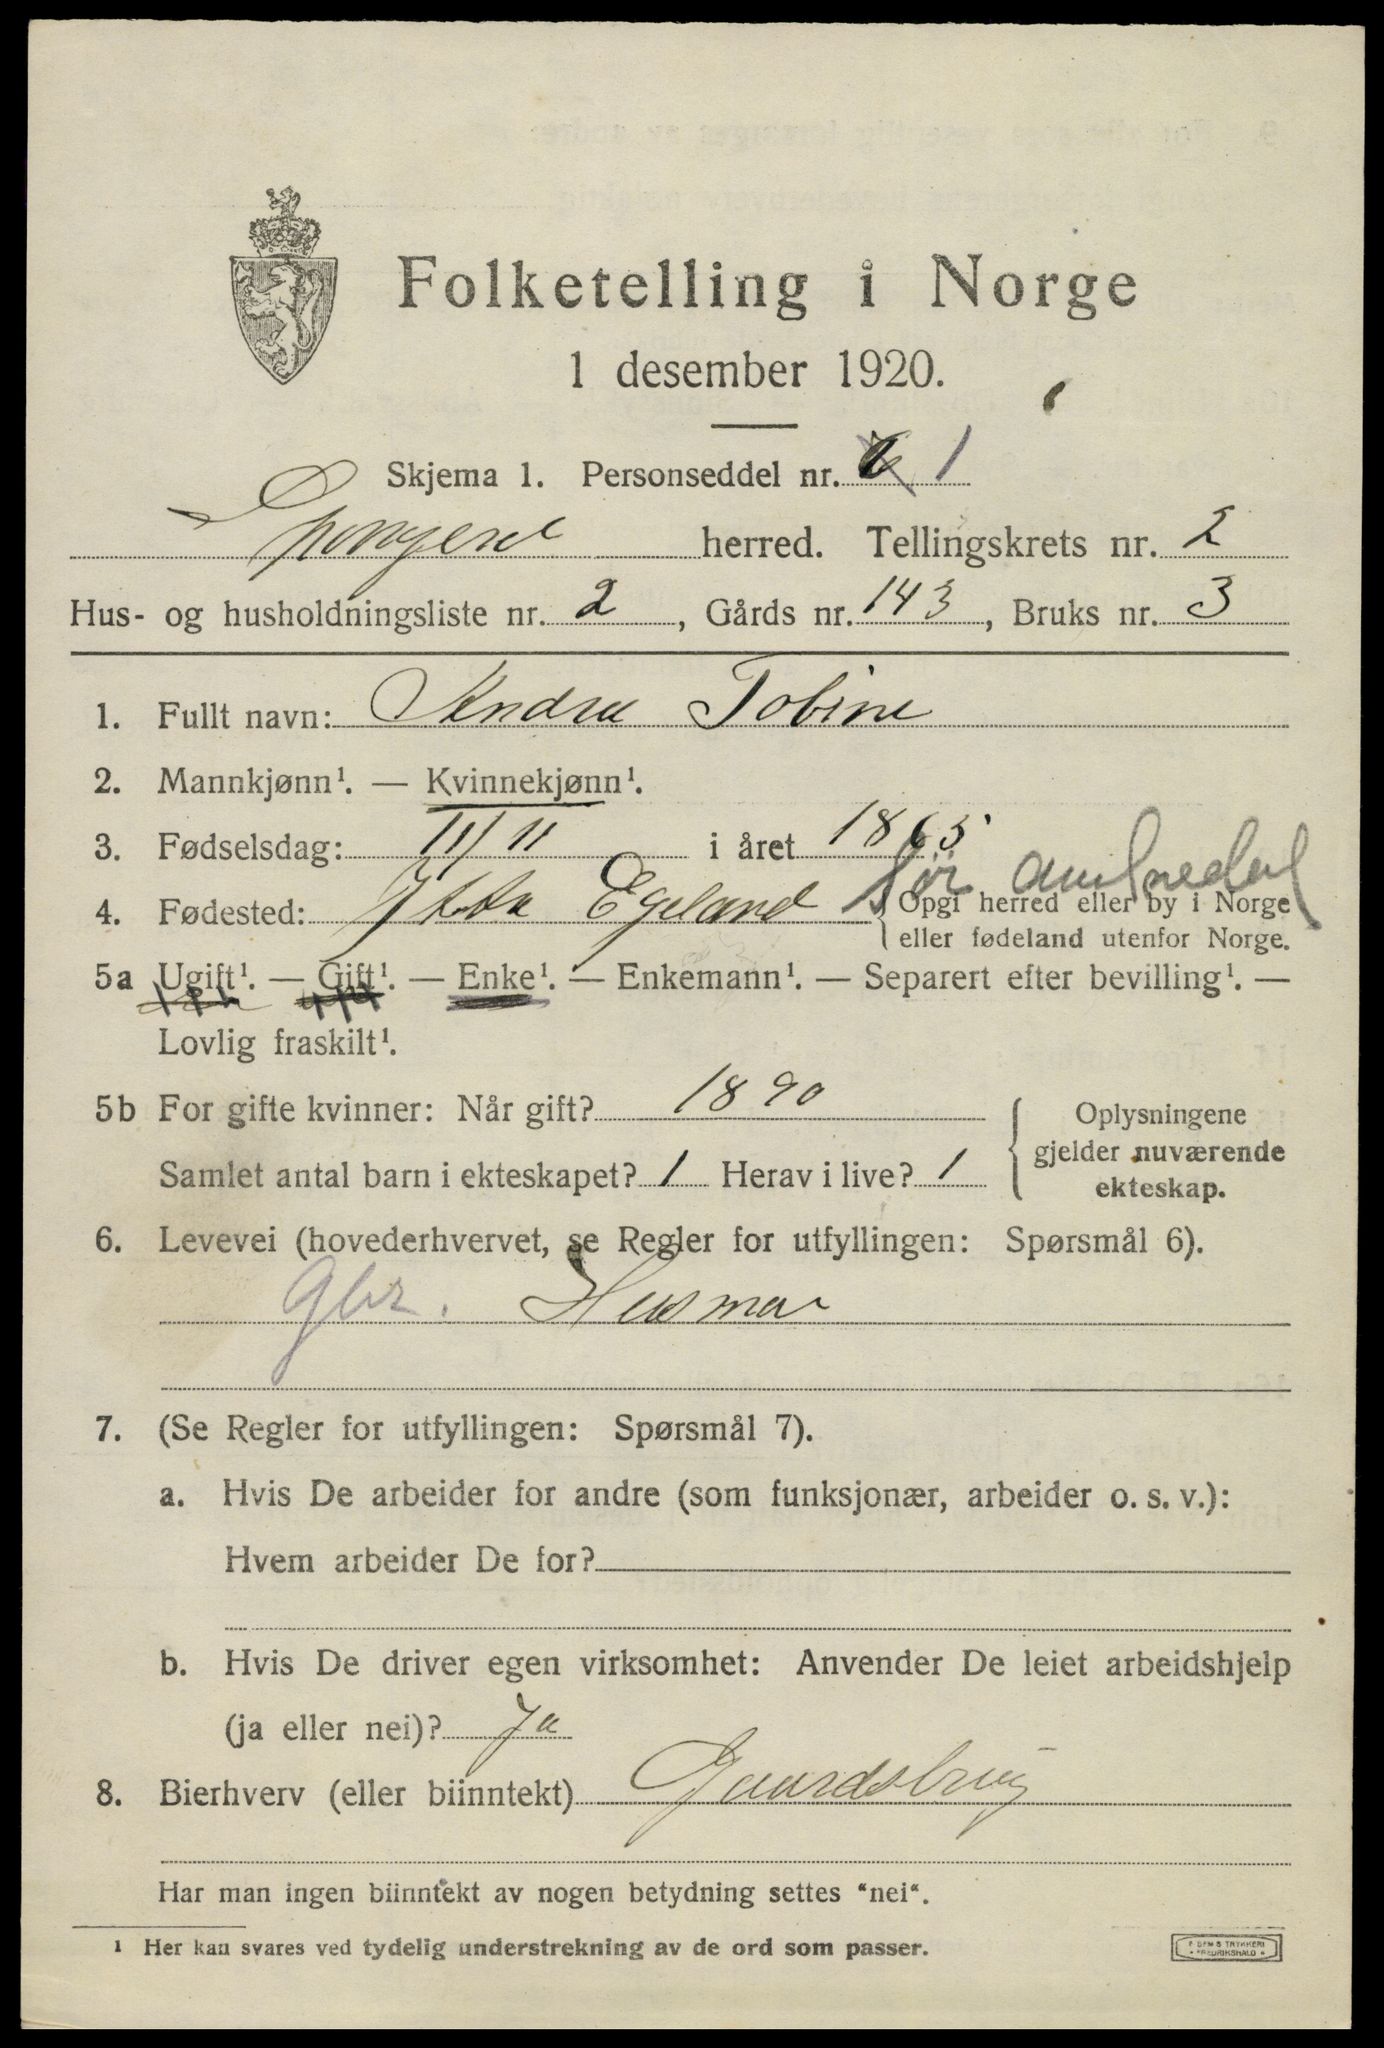 Folketelling i Norge
1 desember 1920.
Skjema 1. Personseddel nr. 6 1
Spangereid herred. Tellingskrets nr. 2
Hus- og husholdningsliste nr. 2, Gårds nr. 143, Bruks nr. 3
1. Fullt navn: Andrea Tobine
2. Mannkjønn¹. — Kvinnekjønn¹.
3. Fødselsdag: 11/11 i året 1865
4. Fødested: Ytra Egeland Sør Audnedal
{ Opgi herred eller by i Norge
eller fødeland utenfor Norge.
5a Ugift¹. — Gift¹. — Enke¹. — Enkemann¹. — Separert efter bevilling¹. —
Lovlig fraskilt¹.
5b For gifte kvinner: Når gift? 1890
Samlet antal barn i ekteskapet? 1 Herav i live? 1
{ Oplysningene
gjelder nuværende
ekteskap.
6. Levevei (hovederhvervet, se Regler for utfyllingen: Spørsmål 6).
Gbr. Husmor
7. (Se Regler for utfyllingen: Spørsmål 7).
a. Hvis De arbeider for andre (som funksjonær, arbeider o. s. v.):
Hvem arbeider De for?
b. Hvis De driver egen virksomhet: Anvender De leiet arbeidshjelp
(ja eller nei)? Ja
8. Bierhverv (eller biinntekt) Gaardsbrug
Har man ingen biinntekt av nogen betydning settes "nei".
¹ Her kan svares ved tydelig understrekning av de ord som passer.
E. SEM'S TRYKKERI
FREDRIKSHALD